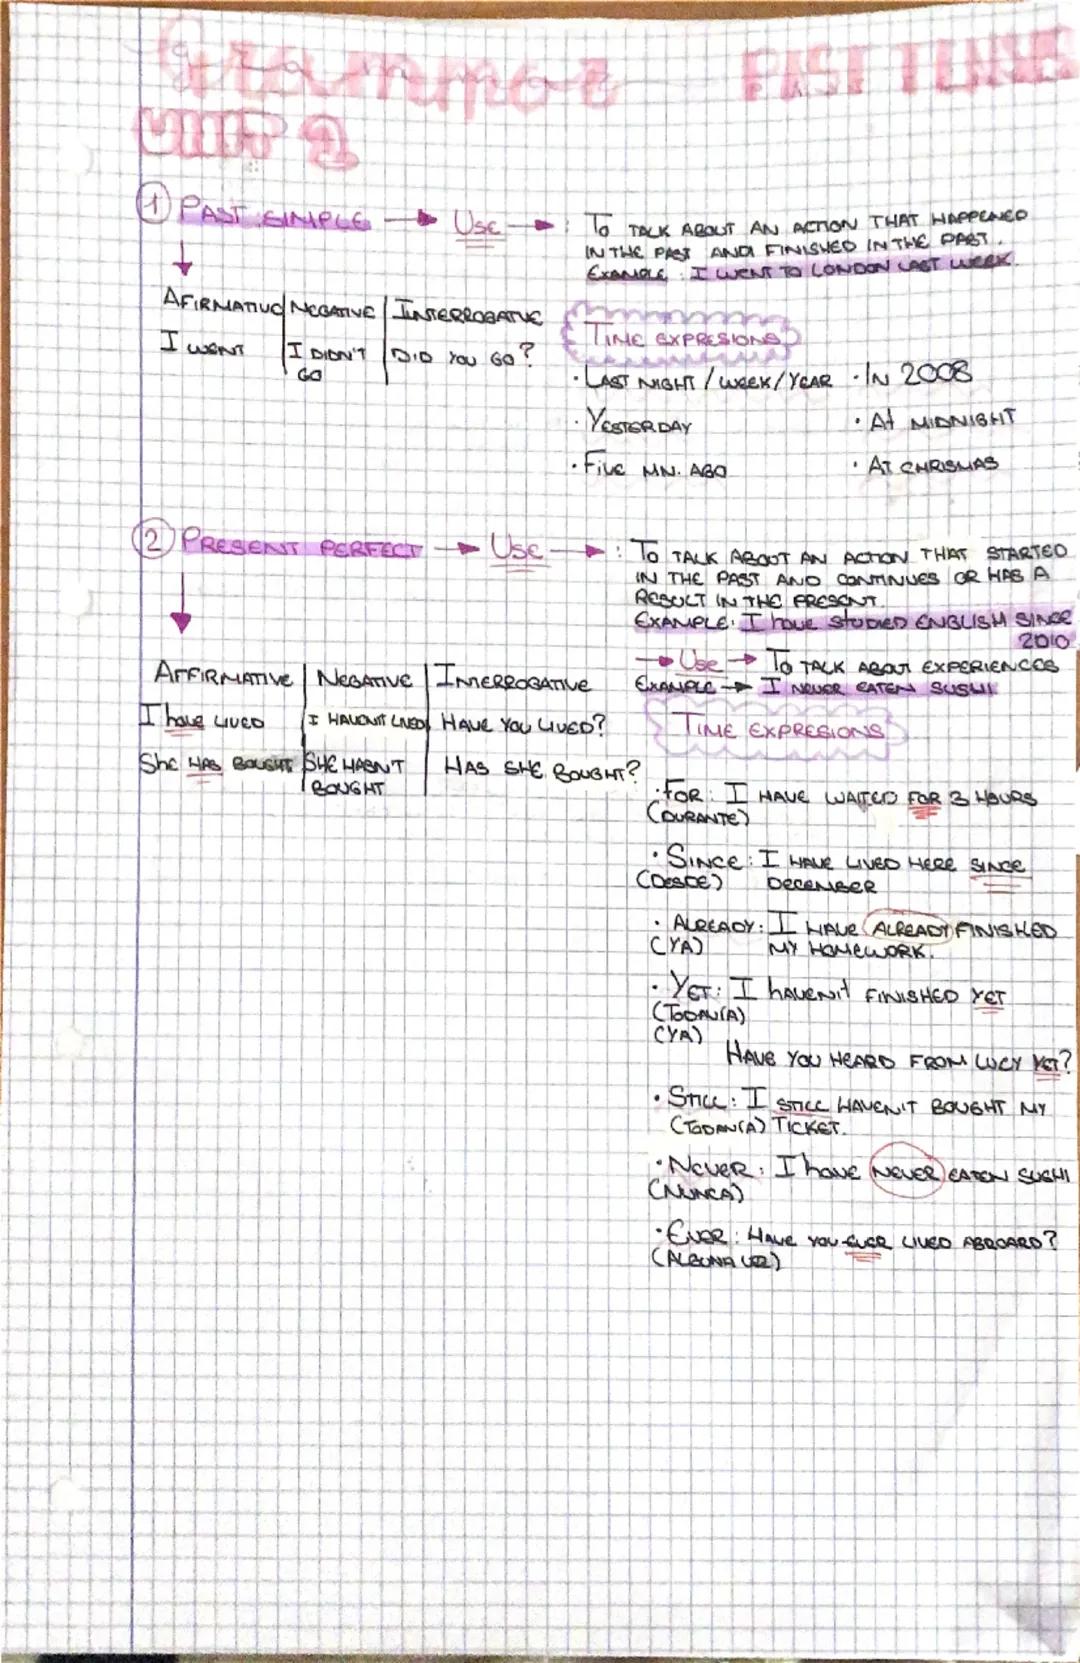 Grammar PAST TENSES
UNIT 1
1 PAST SIMPLE → USE → : TO TALK ABOUT AN ACTION THAT HAPPENED
IN THE PAST AND FINISHED IN THE PAST.
EXAMPLE: I WENT TO LONDON LAST WEEK.
AFIRMATIVO NEGATIVE INTERROGATIVE
I WENT I DIDN'T DID YOU GO?
GO
TIME EXPRESIONS
· LAST NIGHT / WEEK / YEAR · IN 2008
· YESTERDAY · At MIDNIGHT
· FIVE MN. AGO · AT CHRISMAS
2 PRESENT PERFECT → USE → : TO TALK ABOUT AN ACTION THAT STARTED
IN THE PAST AND CONTINUES OR HAS A
RESULT IN THE PRESENT.
EXAMPLE: I have STUDIED ENGLISH SINCE
2010
→ Use → TO TALK ABOUT EXPERIENCES
EXAMPLE → I NEVER EATEN SUSHI
AFFIRMATIVE NEGATIVE INTERROGATIVE
I have LIVED I HAVEN'T LIVED HAVE YOU LIVED?
She HAS BOUGHT SHE HASN'T HAS SHE BOUGHT?
BOUGHT
TIME EXPRESIONS
· FOR: I HAVE WAITED FOR 3 HOURS
(DURANTE)
· SINCE: I HAVE LIVED HERE SINCE
(DESDE) DECEMBER
· ALREADY: I HAVE ALREADY FINISHED
(YA) MY HOMEWORK.
· YET: I haven't FINISHED YET
(TODAVÍA)
(YA)
HAVE YOU HEARD FROM LUCY YET?
· STILL: I STILL HAVEN'T BOUGHT MY
(TODAVÍA) TICKET.
· NEVER: I have NEVER EATEN SUSHI
(NUNCA)
· EVER: HAVE YOU EVER LIVED ABROARD?
(ALGUNA VEZ)